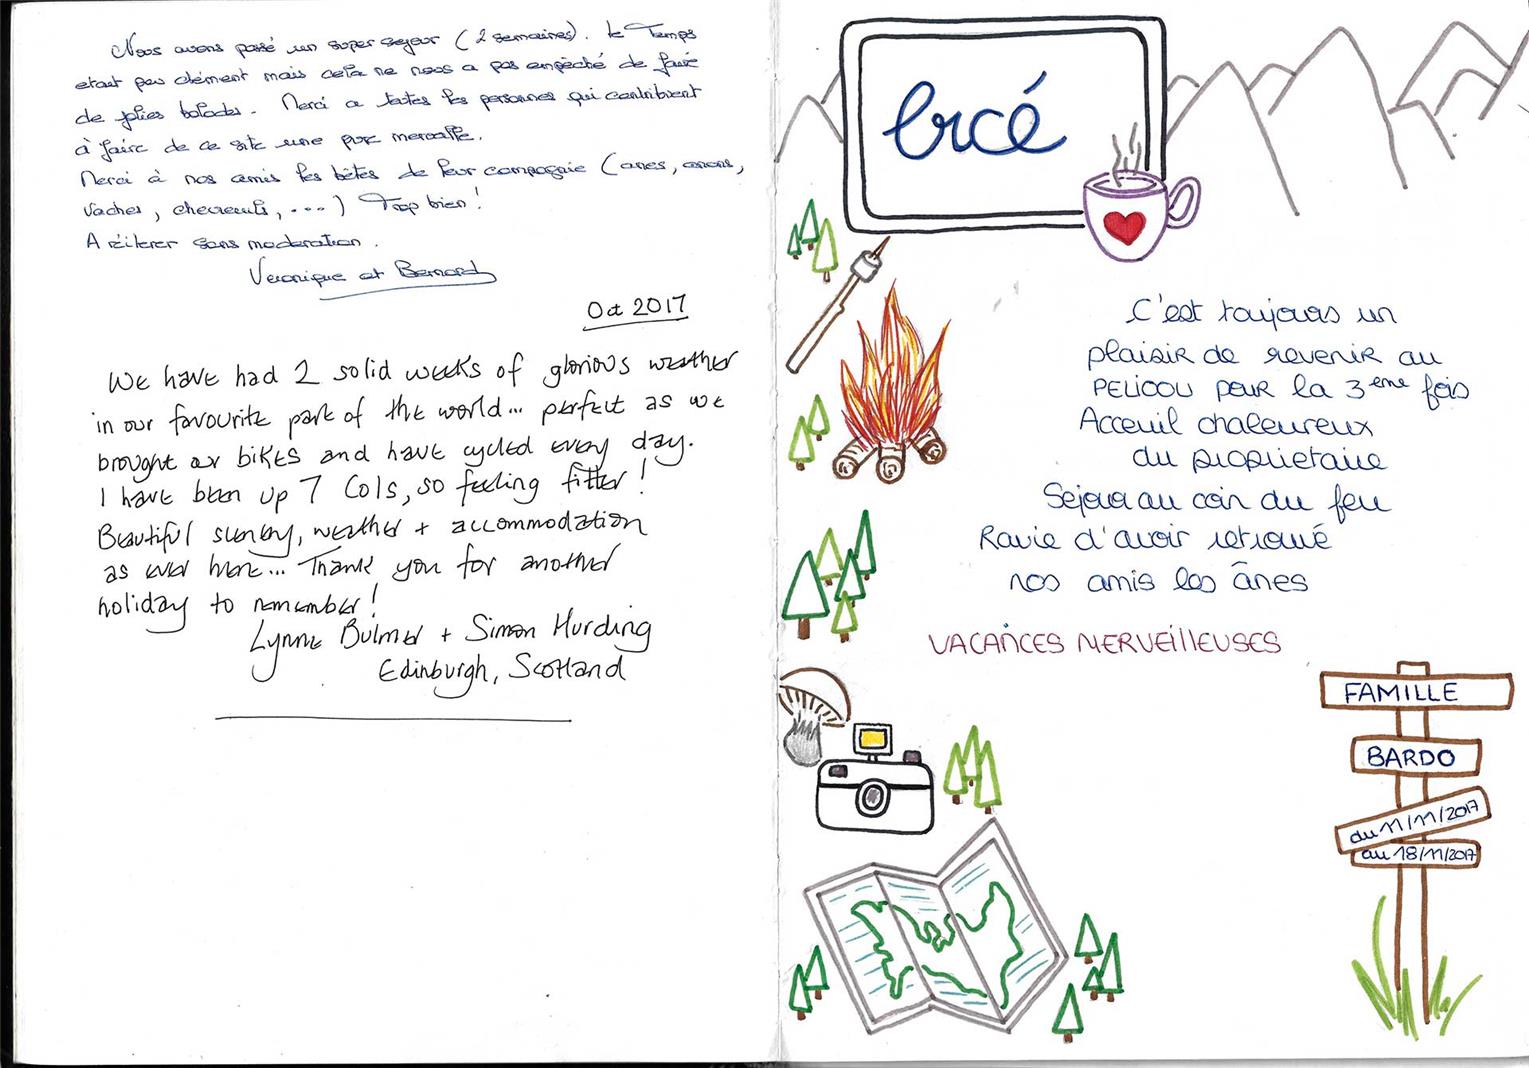 Nous avons passé un super sejour (2 semaines). le Temps
etait peu clément mais cela ne nous a pas empêché de faire
de jolies balades. Merci a toutes les personnes qui contribuent
à faire de ce site une pure merveille.
Merci à nos amis les bêtes de leur compagnie (anes, anons,
vaches, chevreuils, ...) Trop bien!
A réiterer sans moderation.
Veronique et Bernard
Oct 2017
We have had 2 solid weeks of glorious weather
in our favourite part of the world... perfect as we
brought our bikes and have cycled every day.
I have been up 7 Cols, so feeling fitter!
Beautiful scenery, weather + accommodation
as ever here... Thank you for another
holiday to remember!
Lynne Bulmer + Simon Hurding
Edinburgh, Scotland
Ercé
C'est toujours un
plaisir de revenir au
PELICOU pour la 3ème fois
Acceuil chaleureux
du proprietaire
Sejour au coin du feu
Ravie d'avoir retrouvé
nos amis les ânes
VACANCES MERVEILLEUSES
FAMILLE
BARDO
du 11/11/2017
au 18/11/2017